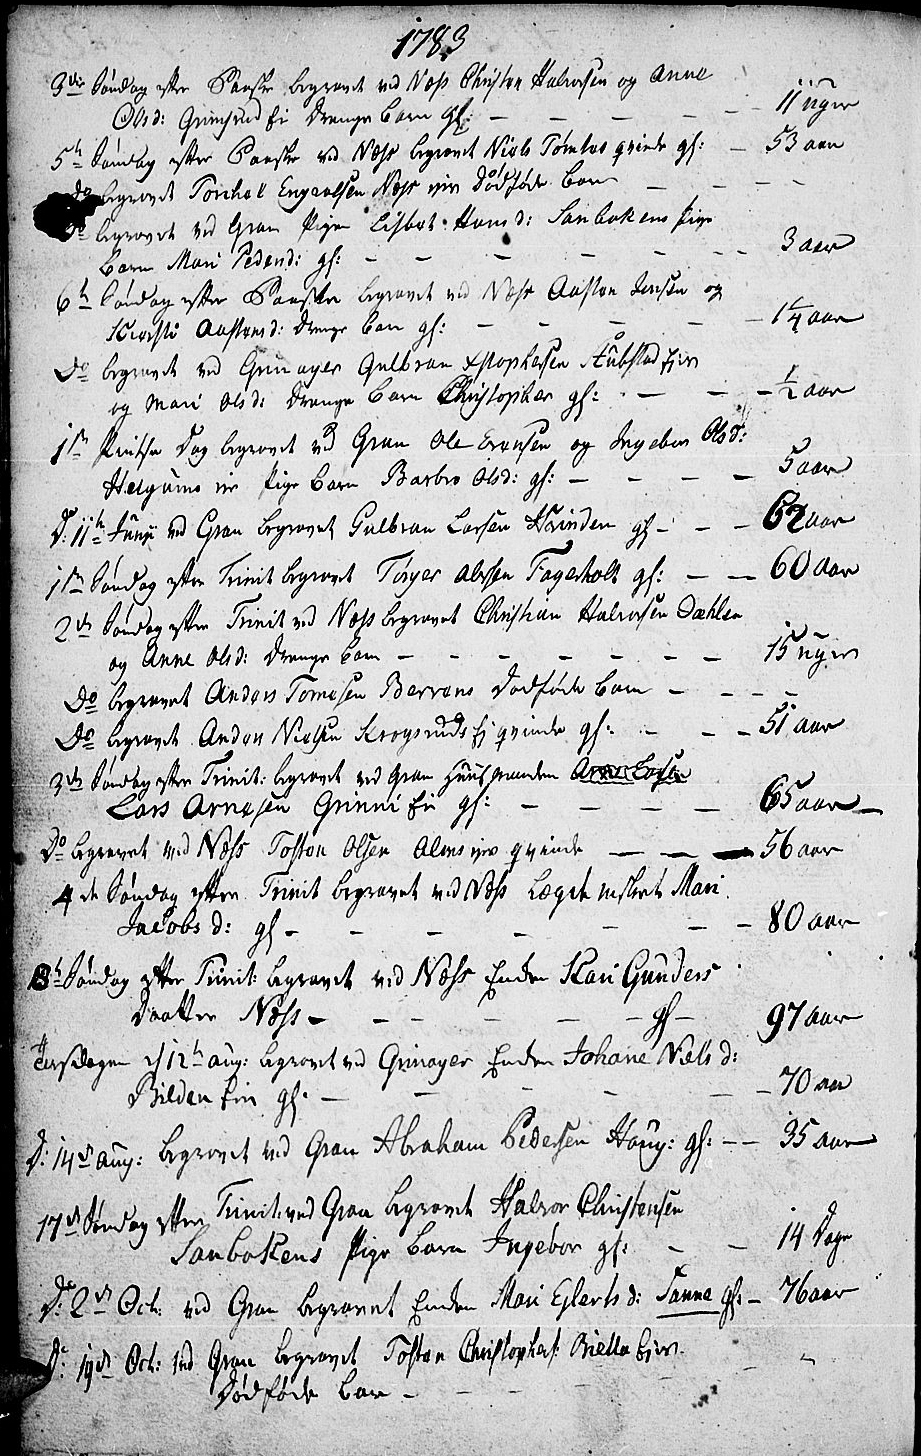 1783
3die Søndag efter Paaske begravet ved Næss Christen Halvorsen og Anne
Olsd: Grimsrud Ei Drenge Barn gl: — — — — — 11 uger
5te Søndag efter Paaske ved Næss begravet Niels Tømtes qvinde gl: — 53 aar
Do begravet Torchel Engvolsen Næss Dødføde Barn — — —
Do begravet ved Gran Pigen Lisbet Hansd: Sanbokens Pige
Barn Mari Pedersd: gl: — — — — — — 3 aar
6te Søndag efter Paaske begravet ved Næss Aasten Jensen og
Kiersti Aastensd: Drenge Barn gl: — — — — — 1 1/4 aar
Do begravet ved Grinager Gulbran Xstophersen Stubstad Eier
og Mari Olsd: Drenge Barn Christopher gl: — — — 1/2 aar
1ste Pintse Dag begravet ved Gran Ole Evensen og Ingebor Olsd:
Helgums Pige Barn Barbro Olsd: gl: — — — — 5 aar
D: 11te Junij ved Gran begravet Gulbran Larsen Hvinden gl — — — 62 aar
1ste Søndag efter Trinit begravet Torger Alvsen Fagerholt gl: — — 60 aar
2den Søndag efter Trinit ved Næss begravet Christian Halvorsen Dæhlen
og Anne Olsd: Drenge Barn — — — — — — — 15 uger
Do begravet Anders Tomesen Bervens Dødføde Barn — — — —
Do begravet Anders Nielsen Krogsruds Ej qvinde gl: — — — 51 aar
3die Søndag efter Trinit: begravet ved Gran Huusmanden
Lars Arnesen Grinni Ei gl: — — — — 65 aar —
Do begravet ved Næss Tosten Olsen Alms qvinde — — — 56 aar
4de Søndag efter Trinit begravet ved Næss Lægdemske Mari
Jacobsd: gl — — — — — — — 80 aar
8de Søndag efter Trinit: begravet ved Næss Enken Kari Gunders
Daatter Næss — — — — — gl — 97 aar
Tirsdagen d 12te aug: begravet ved Grinager Enken Johane Nielsd:
Bilden Ein gl: — — — — — 70 aar
D: 14de aug: begravet ved Gran Abraham Pedersen Houg: gl: — — 35 aar
17de Søndag efter Trinit: ved Gran begravet Halvor Christensen
Sanbokens Pige Barn Ingebor gl: — — 14 Dage
D: 2den Oct: ved Gran begravet Enken Mari Eylertsd: Tanna gl: — 76 aar
D: 19de Oct: ved Gran begravet Tosten Christophers: Biella Eier
Dødføde Barn — — — — —